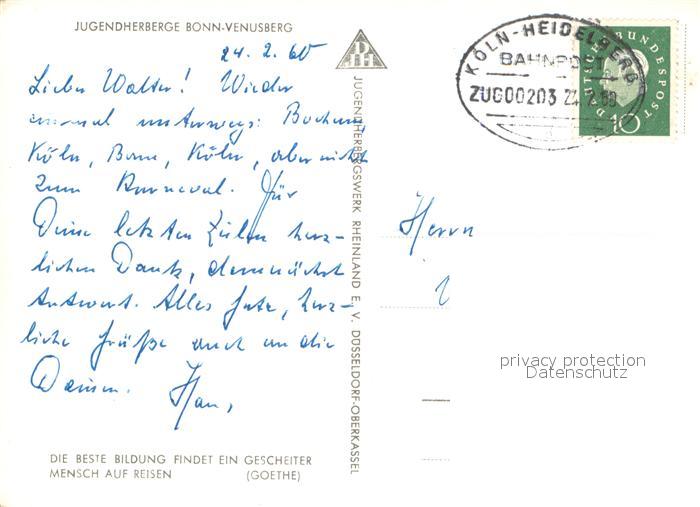 JUGENDHERBERGE BONN-VENUSBERG
24. 2. 60
Lieber Walter! Wieder
einmal unterwegs: Bochum,
Köln, Bonn, Köln, aber nicht
zum Karneval. Für
Deine letzten Zeilen herz-
lichen Dank, demnächst
Antwort. Alles Gute, herz-
liche Grüße auch an die
Deinen.
DIE BESTE BILDUNG FINDET EIN GESCHEITER
MENSCH AUF REISEN (GOETHE)
JUGENDHERBERGSWERK RHEINLAND E. V. DÜSSELDORF-OBERKASSEL
DJH
KÖLN-HEIDELBERG
BAHNPOST
ZUG00203
DEUTSCHE BUNDESPOST
10
Herrn
privacy protection
Datenschutz